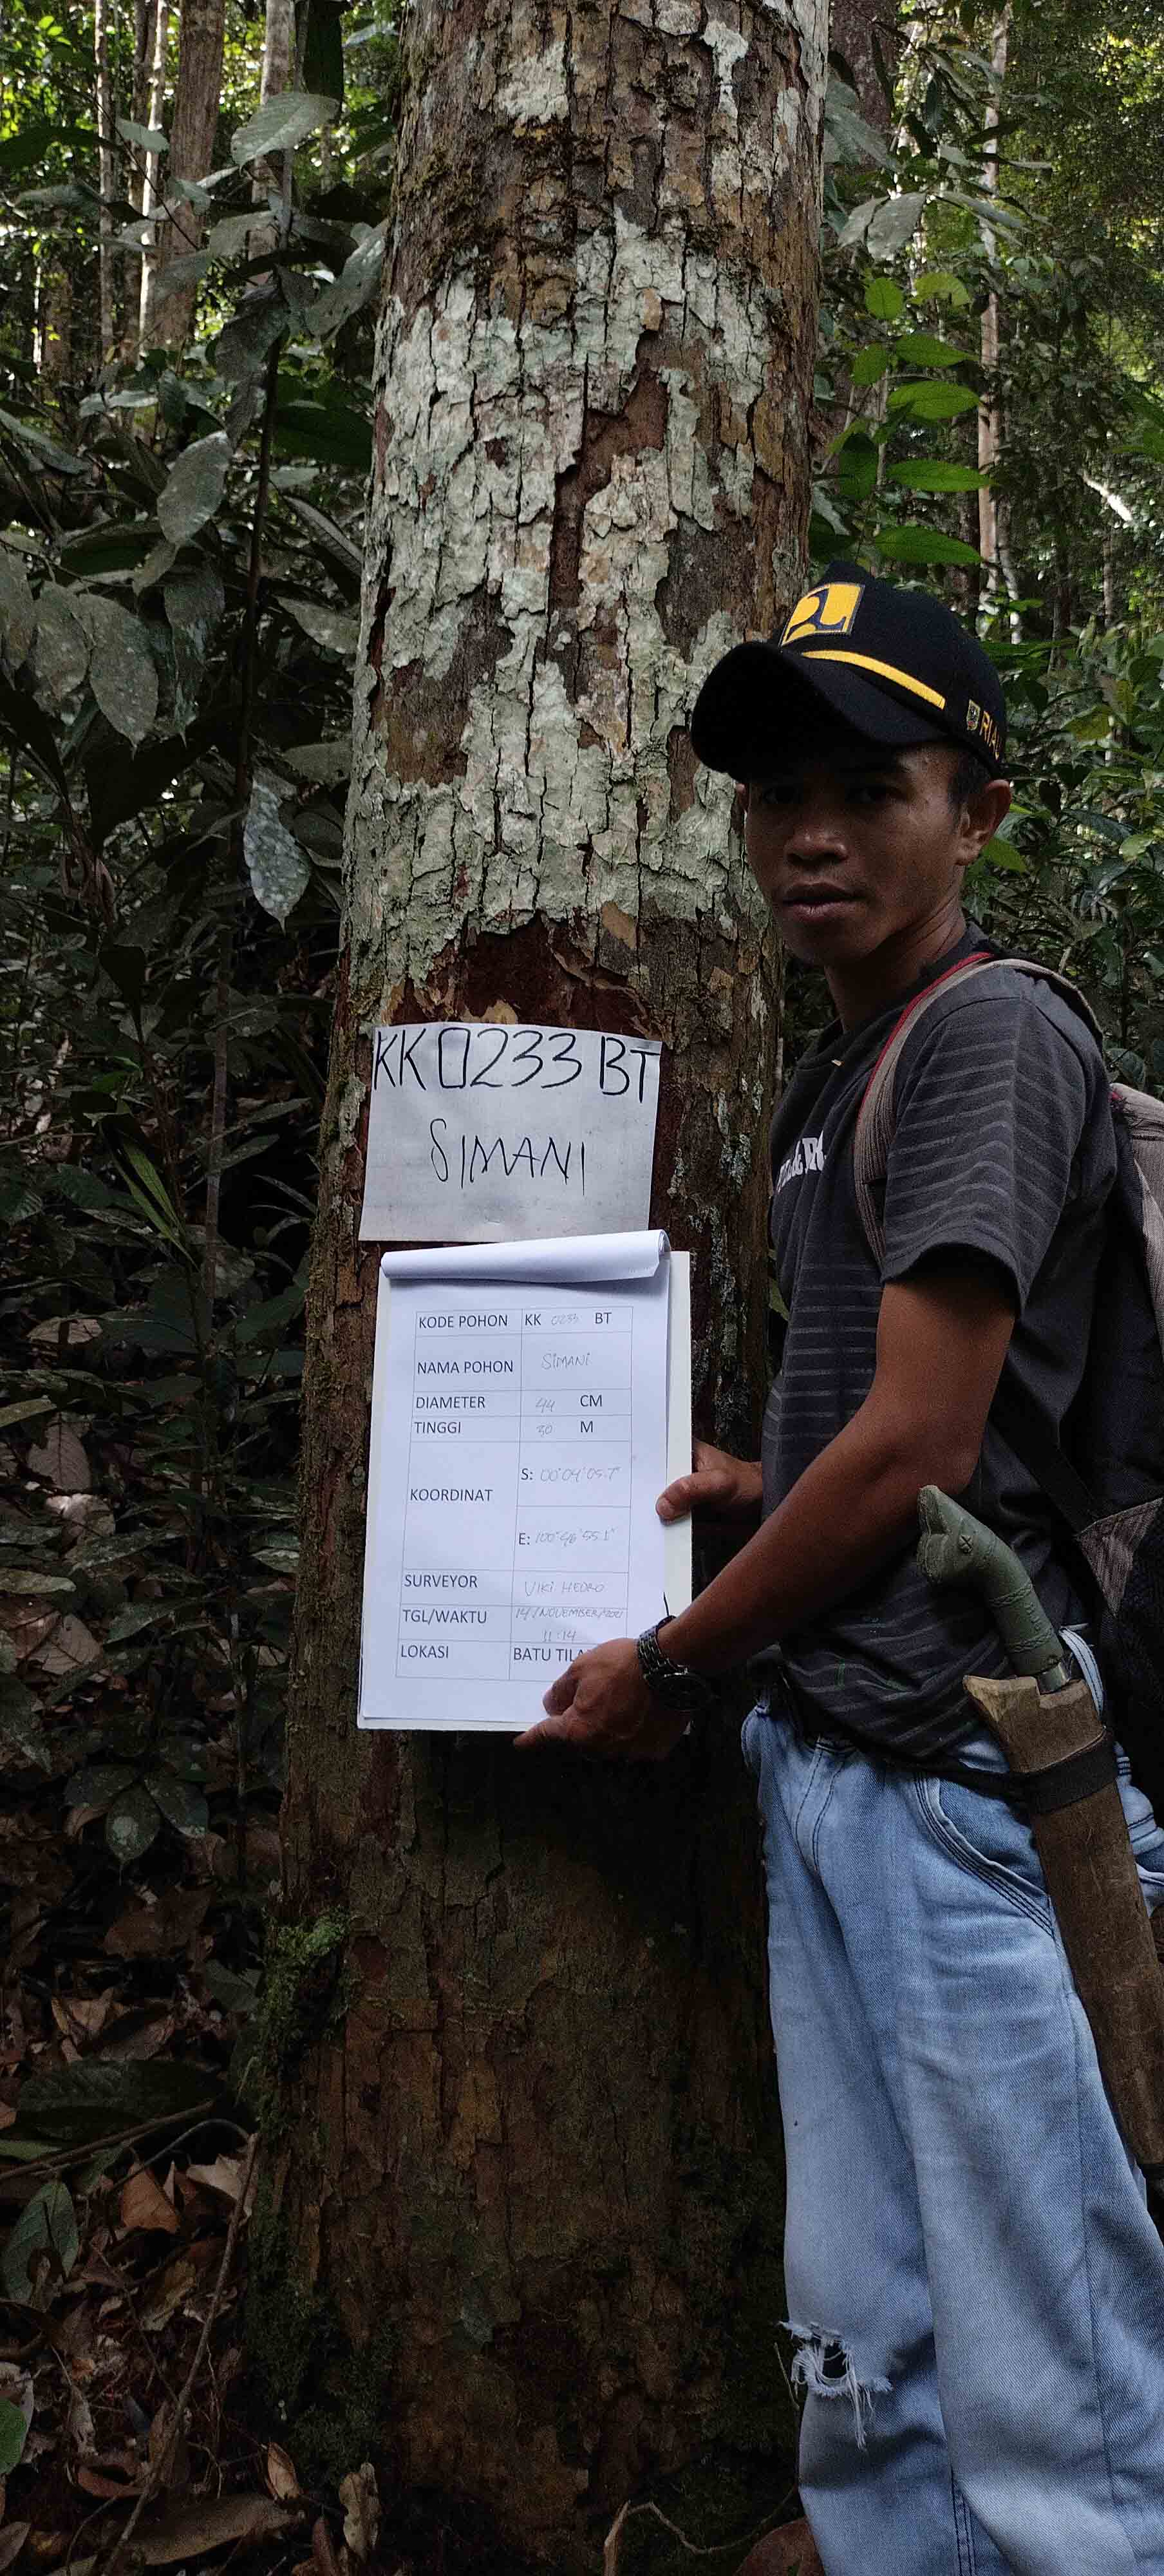 RIAU
KK0233 BT
SIMANI
KODE POHON KK 0233 BT
NAMA POHON SIMANI
DIAMETER 44 CM
TINGGI 30 M
KOORDINAT
S: 00°04'05.7"
E: 100°46'55.1"
SURVEYOR VIKI HEDRO
TGL/WAKTU 14/NOVEMBER/2021
11:14
LOKASI BATU TILA